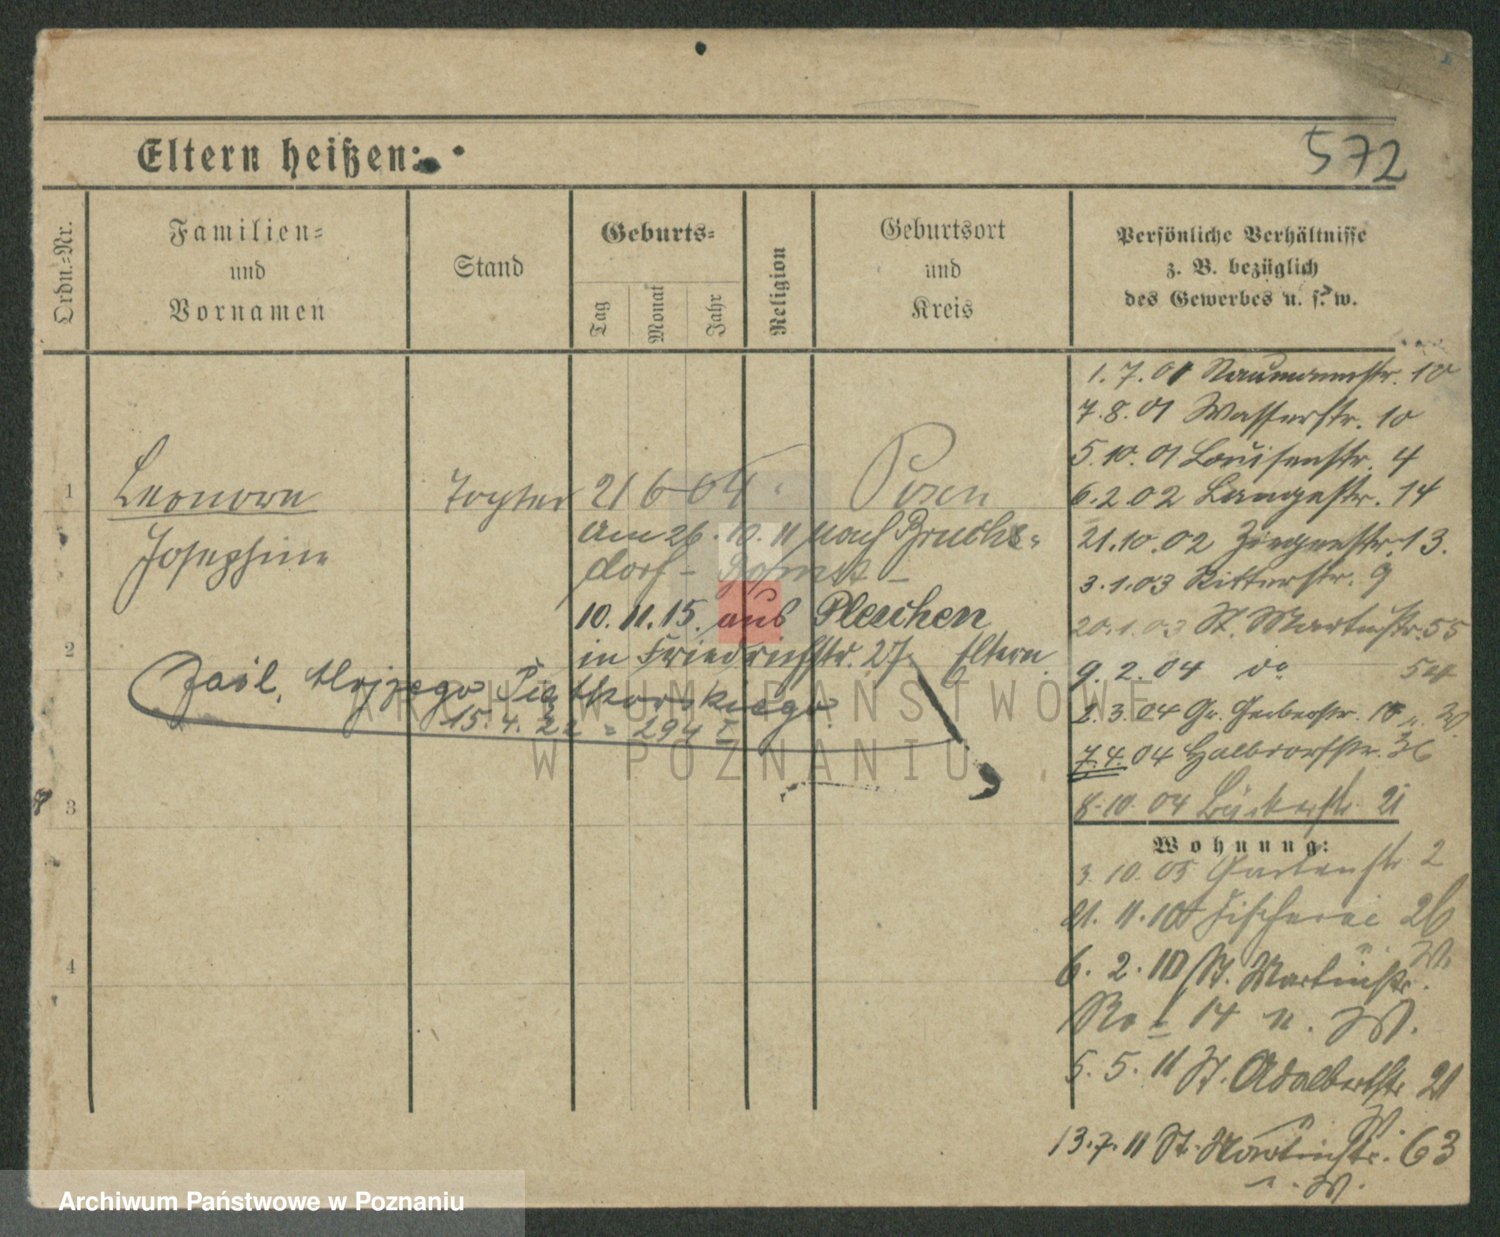 572
Eltern heißen:
Ordn.-Nr.
Familien-
und
Vornamen
Stand
Geburts-
Tag
Monat
Jahr
Religion
Geburtsort
und
Kreis
Persönliche Verhältnisse
z. B. bezüglich
des Gewerbes u. s. w.
1
Leonore
Josephine
Tochter
21 6 04
Posen
am 26.10.11 nach Bruchs-
dorf - Bomst -
10.11.15. aus Pleschen
in Friedrichstr. 27. Eltern
2
Zaśl.
15.4.22 = 294
3
4
1.7.01 Naumannstr. 10
7.8.01 Wasserstr. 10
5.10.01 Louisenstr. 4
6.2.02 Langestr. 14
21.10.02 Ziegenstr. 13.
3.1.03 Ritterstr. 9
20.1.03 St. Martinstr. 55
9.2.04 do 54
2.3.04 Gr. Gerberstr.
7.4.04 Halbdorfstr. 36
8.10.04 Bäckerstr. 21
Wohnung:
3.10.05 Gartenstr. 2
21.11.10 Fischerei 26
W.
6.2.10 St. Martinstr.
14 u. W.
5.5.11 St. Adalbertstr. 21
W.
13.7.11 St. Martinstr. 63
W.
ARCHIWUM PAŃSTWOWE
W POZNANIU
Archiwum Państwowe w Poznaniu